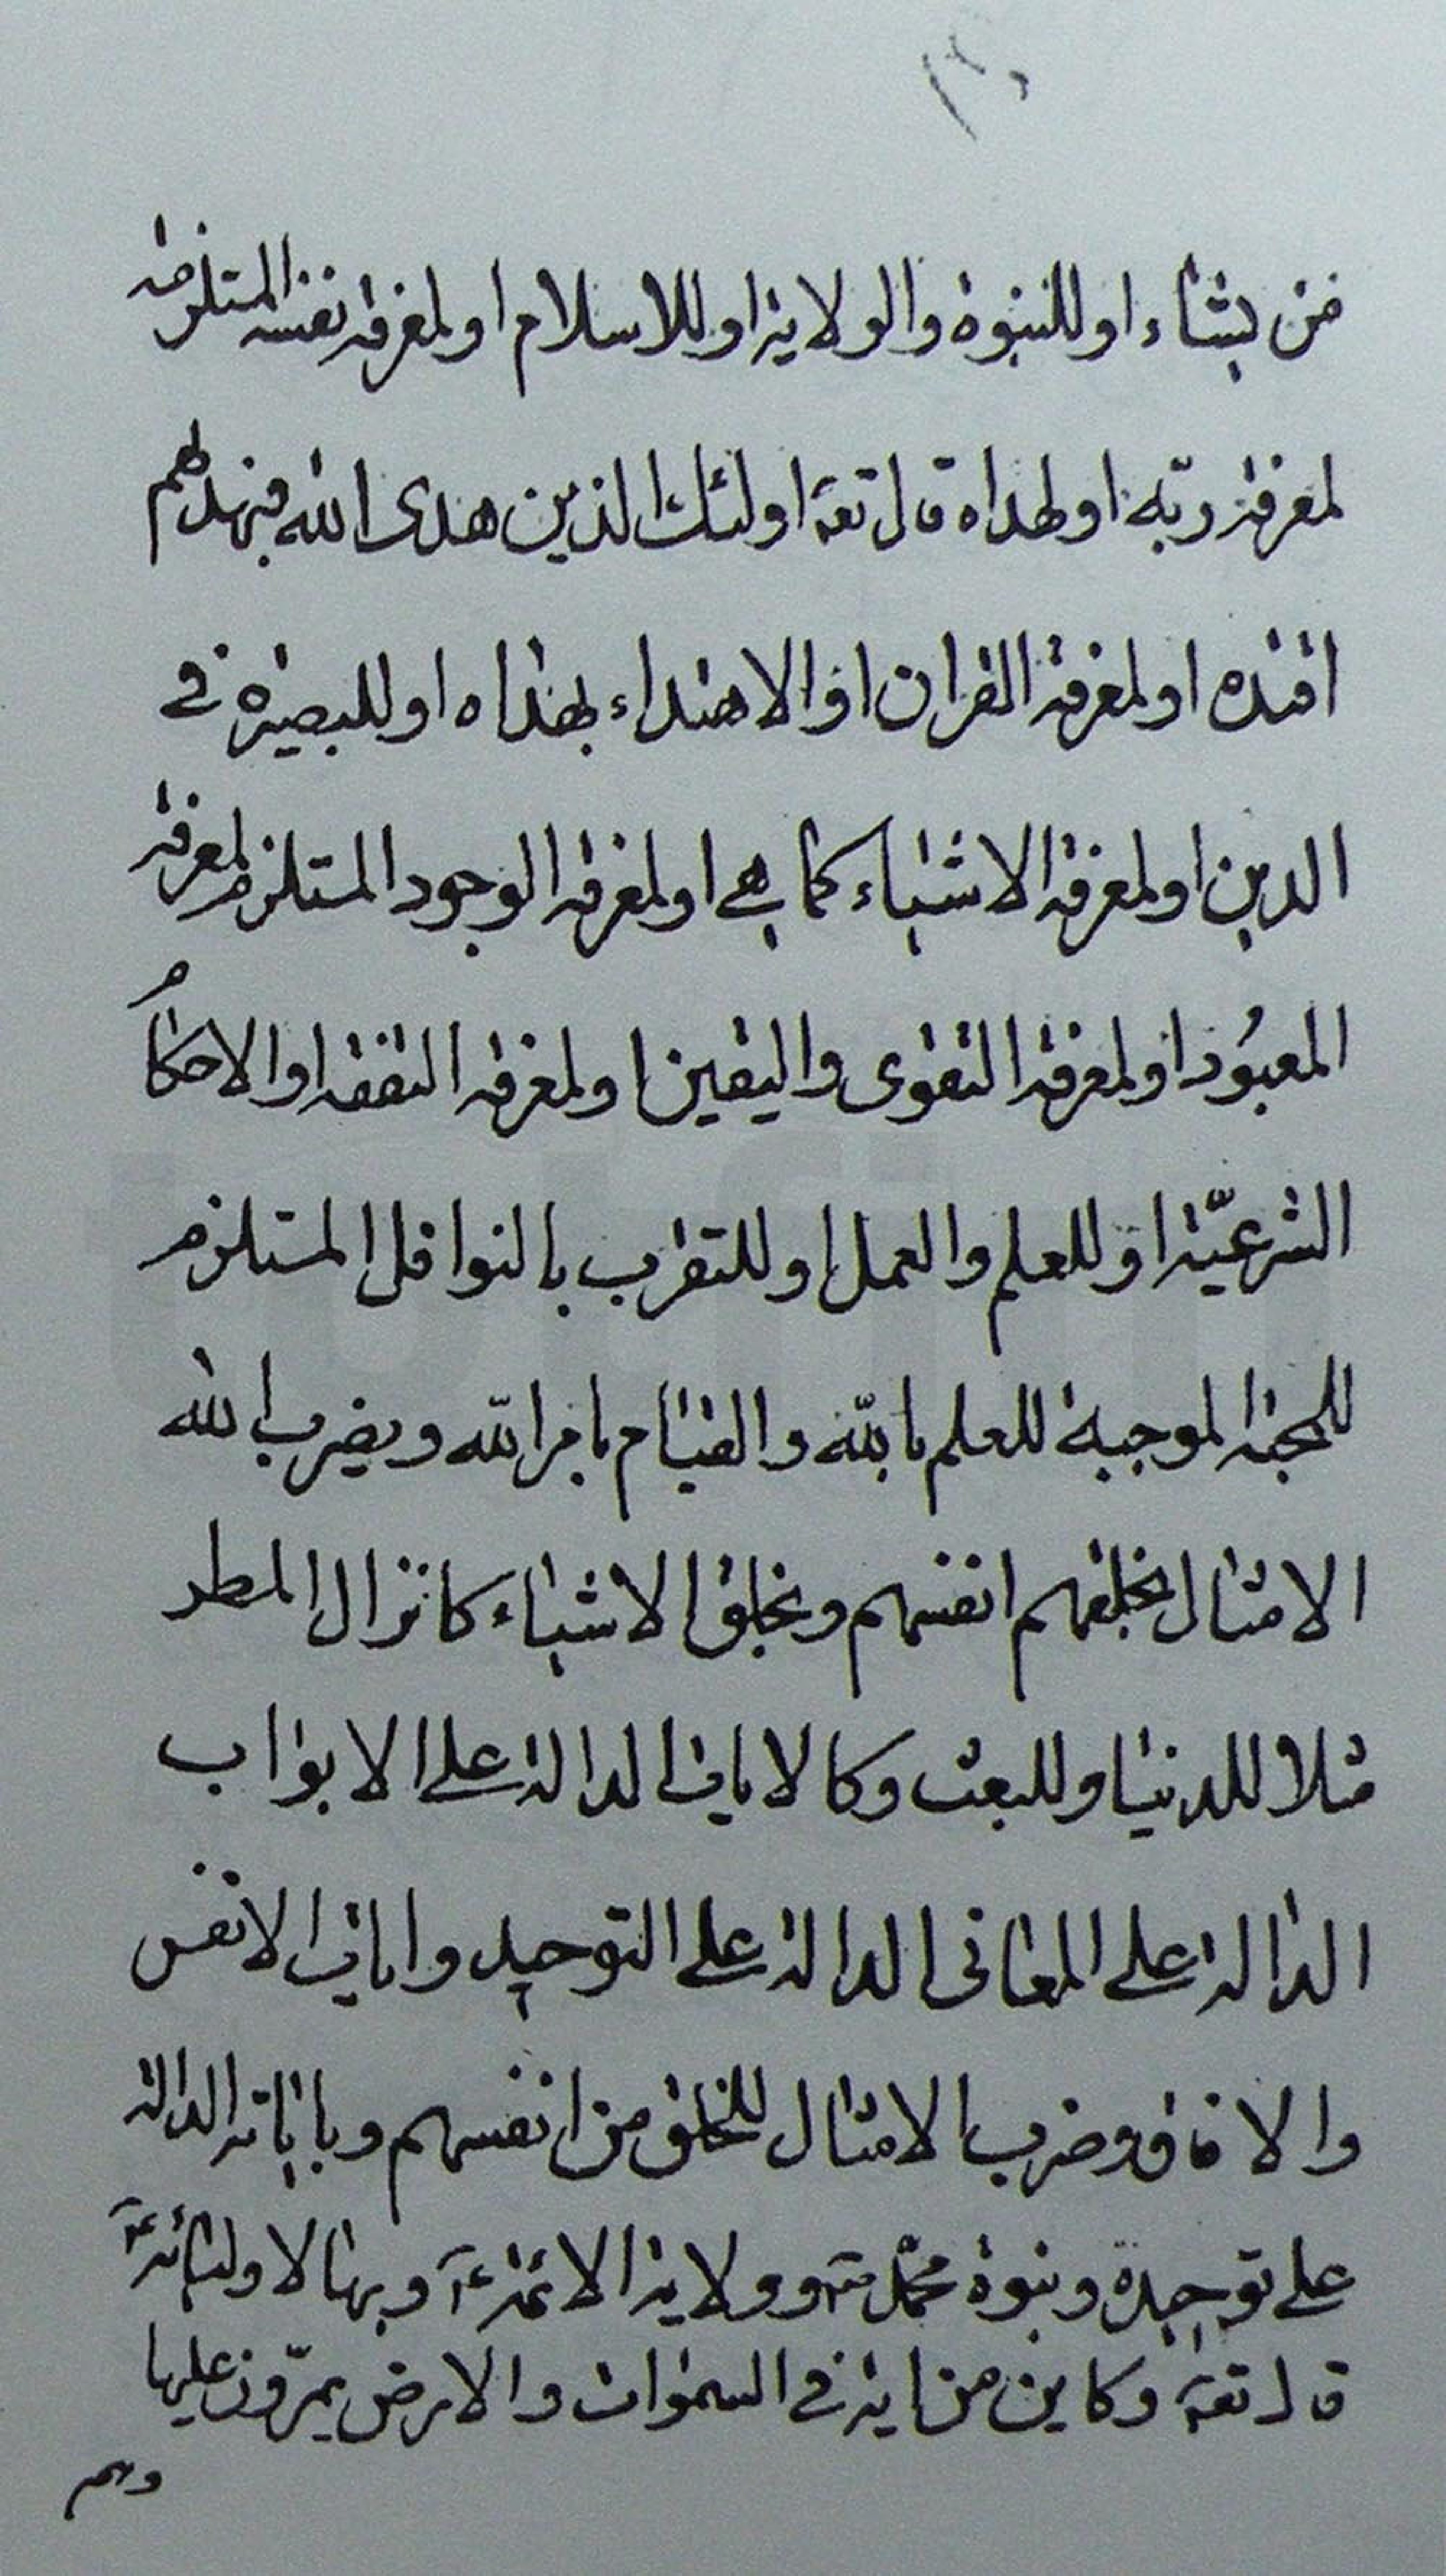 من يشاء او للنبوة والولاية او للاسلام او لمعرفة نفسه المستلزمة
لمعرفة ربّه او لهداه قال تعه اولئك الذين هدى الله فبهديهم
اقتده او لمعرفة القران او الاهتداء بهداه او للبصيرة في
الدين او لمعرفة الاشياء كما هي او لمعرفة الوجود المستلزم لمعرفة
المعبُود او لمعرفة التقوى واليقين او لمعرفة التفقه او الاحكام
الشرعيّة او للعلم والعمل او للتقرب بالنوافل المستلزم
للمحبة الموجبة للعلم بالله والقيام بامر الله ويضرب الله
الامثال بخلقهم انفسهم وبخلق الاشياء كانزال المطر
مثلا للدنيا وللبعث وكالايات الدالة على الابواب
الدالة على المعانى الدالة على التوحيد وايات الانفس
والافاق وضرب الامثال للخلق من انفسهم وباياته الدالة
على توحيده ونبوة محمّد صه وولاية الائمة عه وبها لاوليائه عه
قال تعه وكاين من اية في السموات والارض يمرّون عليها
وهم